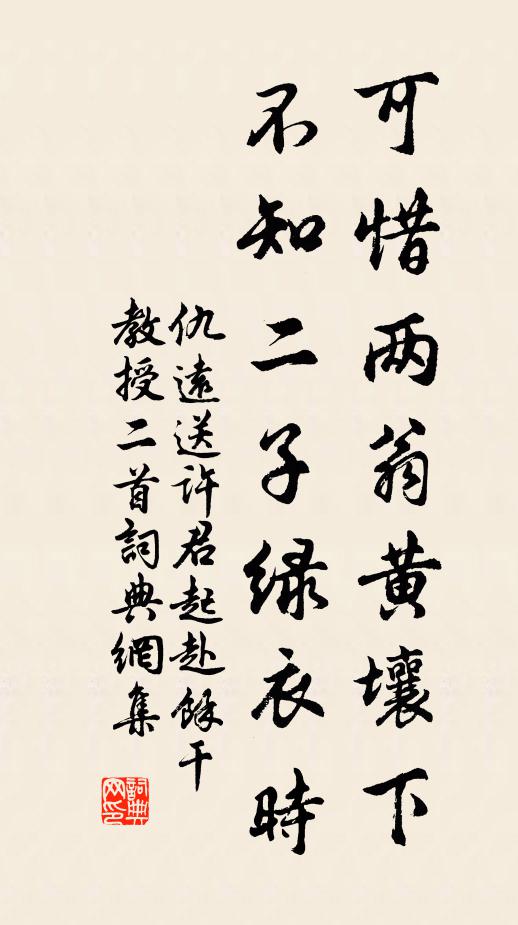 可惜两翁黄壤下
不知二子绿衣時
仇遠送許君起赴餘干
教授二首詞典網集
詞典网印